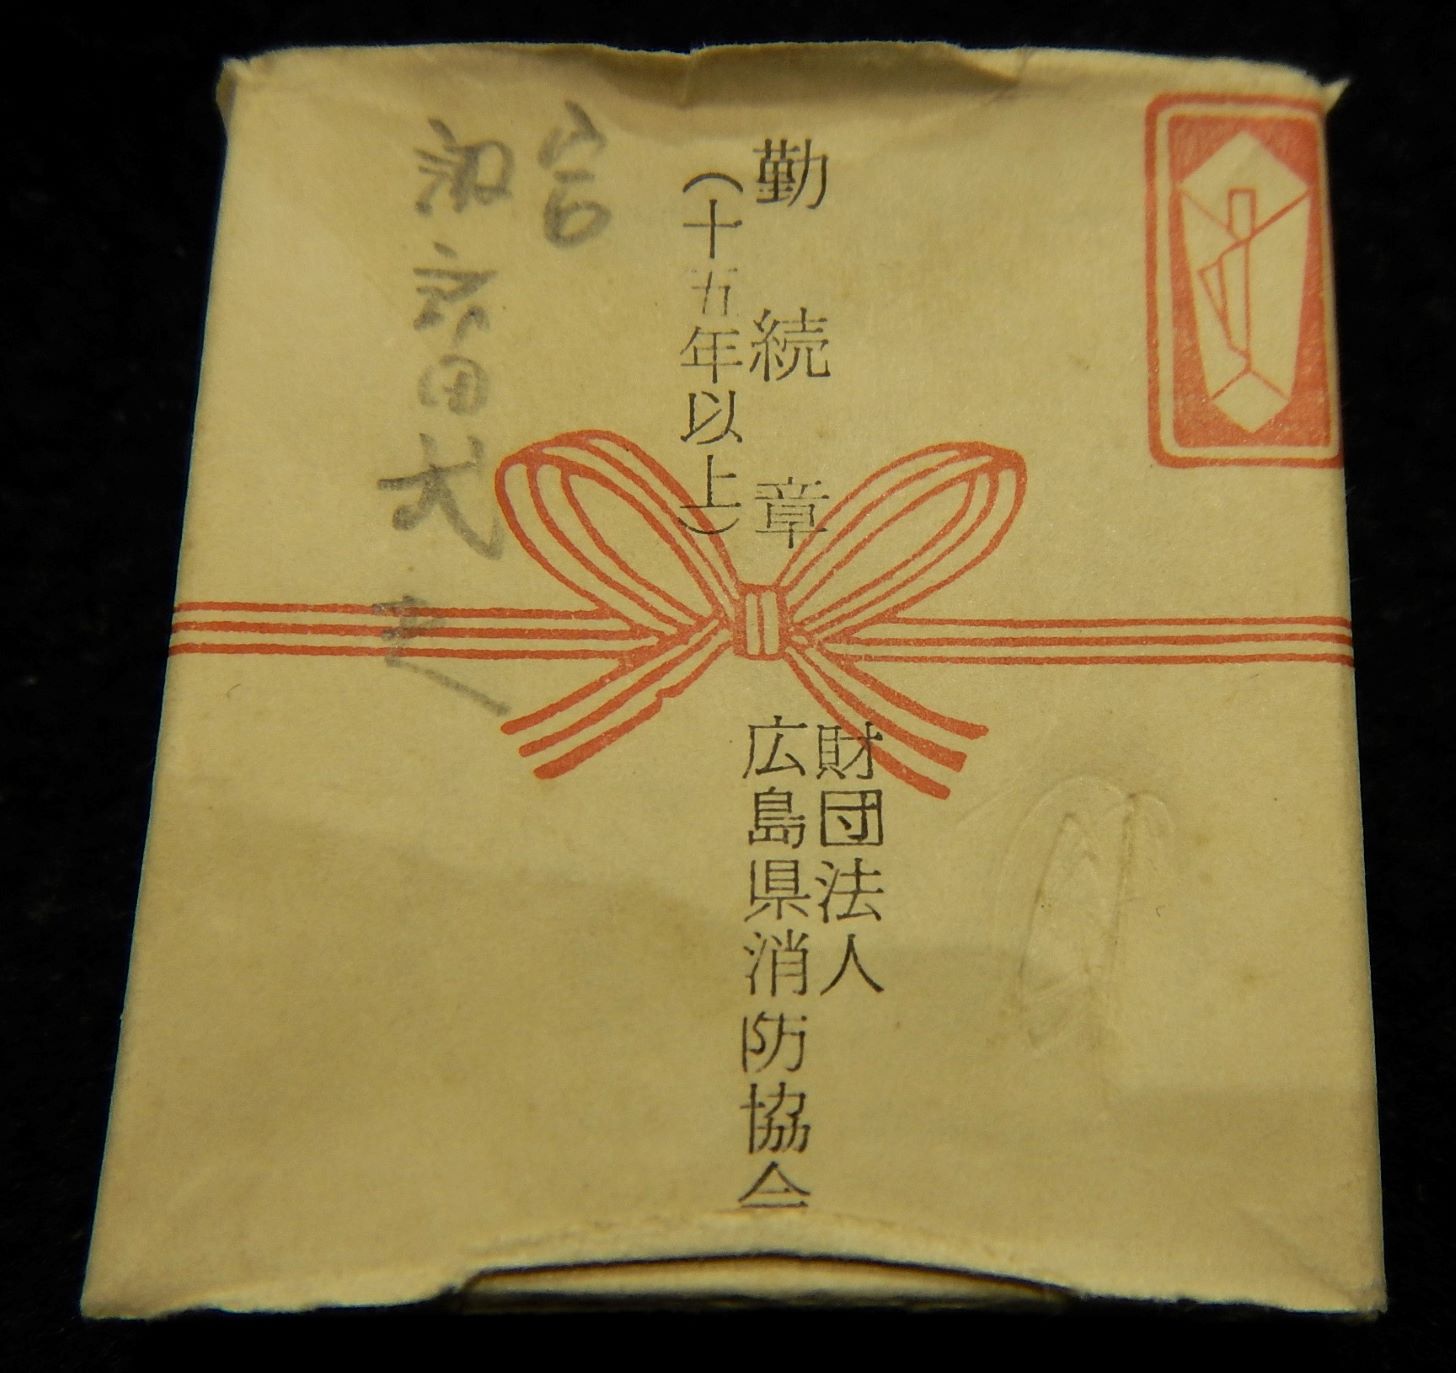 勤続章
(十五年以上)
財団法人
広島県消防協会
宮
田